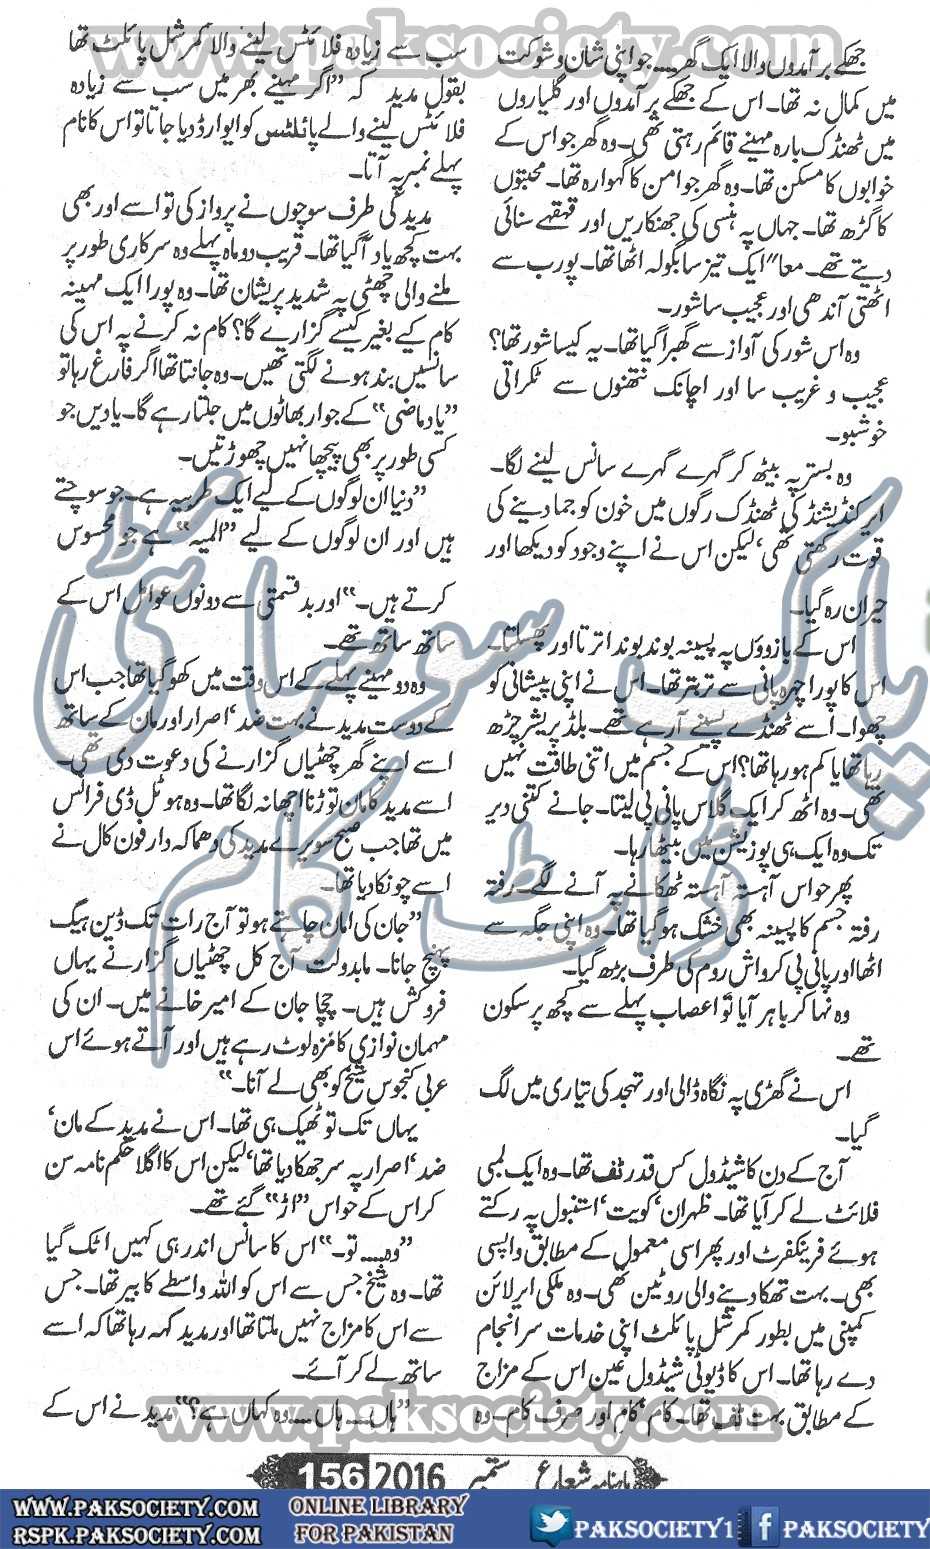 www.paksociety.com
جھکے برآمدوں والا ایک گھر.... جو اپنی شان و شوکت
میں کمال نہ تھا۔ اس کے جھکے برآمدوں اور گلیاروں
میں ٹھنڈک بارہ مہینے قائم رہتی تھی۔ وہ گھر جو اس کے
خوابوں کا مسکن تھا۔ وہ گھر جو امن کا گہوارہ تھا۔ محبتوں
کا گڑھ تھا۔ جہاں پہ ہنسی کی جھنکاریں اور قہقہے سنائی
دیتے تھے۔ معا" ایک تیز سا بگولہ اٹھا تھا۔ پورب سے
اٹھتی آندھی اور عجیب سا شور۔
وہ اس شور کی آواز سے گھبرا گیا تھا۔ یہ کیسا شور تھا؟
عجیب و غریب سا اور اچانک نتھنوں سے ٹکراتی
خوشبو۔
وہ بستر پہ بیٹھ کر گہرے گہرے سانس لینے لگا۔
ایر کنڈیشنڈ کی ٹھنڈک رگوں میں خون کو جما دینے کی
قوت رکھتی تھی' لیکن اس نے اپنے وجود کو دیکھا اور
حیران رہ گیا۔
اس کے بازوؤں پہ پسینہ بوند بوند اترتا اور پھسلتا۔
اس کا پورا چہرہ پانی سے تربتر تھا۔ اس نے اپنی پیشانی کو
چھوا۔ اسے ٹھنڈے پسینے آ رہے تھے۔ بلڈ پریشر چڑھ
رہا تھا یا کم ہو رہا تھا؟ اس کے جسم میں اتنی طاقت نہیں
تھی۔ وہ اٹھ کر ایک گلاس پانی پی لیتا۔ جانے کتنی دیر
تک وہ ایک ہی پوزیشن میں بیٹھا رہا۔
پھر حواس آہستہ آہستہ ٹھکانے پہ آنے لگے۔ رفتہ
رفتہ جسم کا پسینہ بھی خشک ہو گیا تھا۔ وہ اپنی جگہ سے
اٹھا اور پانی پی کر واش روم کی طرف بڑھ گیا۔
وہ نہا کر باہر آیا تو اعصاب پہلے سے کچھ پرسکون
تھے۔
اس نے گھڑی پہ نگاہ ڈالی اور تہجد کی تیاری میں لگ
گیا۔
آج کے دن کا شیڈول کس قدر ٹف تھا۔ وہ ایک لمبی
فلائٹ لے کر آیا تھا۔ ظہران' کویت' استنبول پہ رکتے
ہوئے فرینکفرٹ اور پھر اسی معمول کے مطابق واپسی
بھی۔ بہت تھکا دینے والی روٹین تھی۔ وہ ملکی ایرلائن
کمپنی میں بطور کمرشل پائلٹ اپنی خدمات سرانجام
دے رہا تھا۔ اس کا ڈیوٹی شیڈول عین اس کے مزاج
کے مطابق بہت ٹف تھا۔ کام' کام اور صرف کام۔ وہ
سب سے زیادہ فلائٹس لینے والا کمرشل پائلٹ تھا
بقول مدید کہ "اگر مہینے بھر میں سب سے زیادہ
فلائٹس لینے والے پائلٹس کو ایوارڈ دیا جاتا تو اس کا نام
پہلے نمبر پہ آتا۔
مدید کی طرف سوچوں نے پرواز کی تو اسے اور بھی
بہت کچھ یاد آ گیا تھا۔ قریب دو ماہ پہلے وہ سرکاری طور پر
ملنے والی چھٹی پہ شدید پریشان تھا۔ وہ پورا ایک مہینہ
کام کیے بغیر کیسے گزارے گا؟ کام نہ کرنے پہ اس کی
سانسیں بند ہونے لگتی تھیں۔ وہ جانتا تھا اگر فارغ رہا تو
"یاد ماضی" کے جوار بھاٹوں میں جلتا رہے گا۔ یادیں جو
کسی طور پر بھی پیچھا نہیں چھوڑتیں۔
"دنیا ان لوگوں کے لیے ایک طربیہ ہے۔ جو سوچتے
ہیں اور ان لوگوں کے لیے "المیہ" ہے جو محسوس
کرتے ہیں۔" اور بدقسمتی سے دونوں عوامل اس کے
ساتھ ساتھ تھے۔
وہ دو مہینے پہلے کے اس وقت میں کھو گیا تھا جب اس
کے دوست مدید نے بہت ضد' اصرار اور مان کے ساتھ
اسے اپنے گھر چھٹیاں گزارنے کی دعوت دی تھی۔
اسے مدید کا مان توڑنا اچھا نہ لگا تھا۔ وہ ہوٹل ڈی فرانس
میں تھا جب صبح سویرے مدید کی دھماکہ وار فون کال نے
اسے چونکا دیا تھا۔
"جان کی امان چاہتے ہو تو آج رات تک ڈین ہیگ
پہنچ جانا۔ مابدولت آج کل چھٹیاں گزارنے یہاں
فروکش ہیں۔ چچا جان کے امیر خانے میں۔ ان کی
مہمان نوازی کا مزہ لوٹ رہے ہیں اور آتے ہوئے اس
عربی کنجوس شیخ کو بھی لے آنا۔"
یہاں تک تو ٹھیک ہی تھا۔ اس نے مدید کے مان'
ضد' اصرار پہ سر جھکا دیا تھا' لیکن اس کا اگلا حکم نامہ سن
کر اس کے حواس "اڑ" گئے تھے۔
"وہ.... تو۔" اس کا سانس اندر ہی کہیں اٹک گیا
تھا۔ وہ شیخ جس سے اس کو اللہ واسطے کا بیر تھا۔ جس
سے اس کا مزاج نہیں ملتا تھا اور مدید کہہ رہا تھا کہ اسے
ساتھ لے کر آئے۔
"ہاں.... ہاں.... وہ کہاں ہے؟" مدید نے اس کے
پاک سوسائٹی
ڈاٹ کام
www.paksociety.com
ماہنامہ شعاع ستمبر 2016 156
WWW.PAKSOCIETY.COM
RSPK.PAKSOCIETY.COM
ONLINE LIBRARY
FOR PAKISTAN
PAKSOCIETY1
PAKSOCIETY